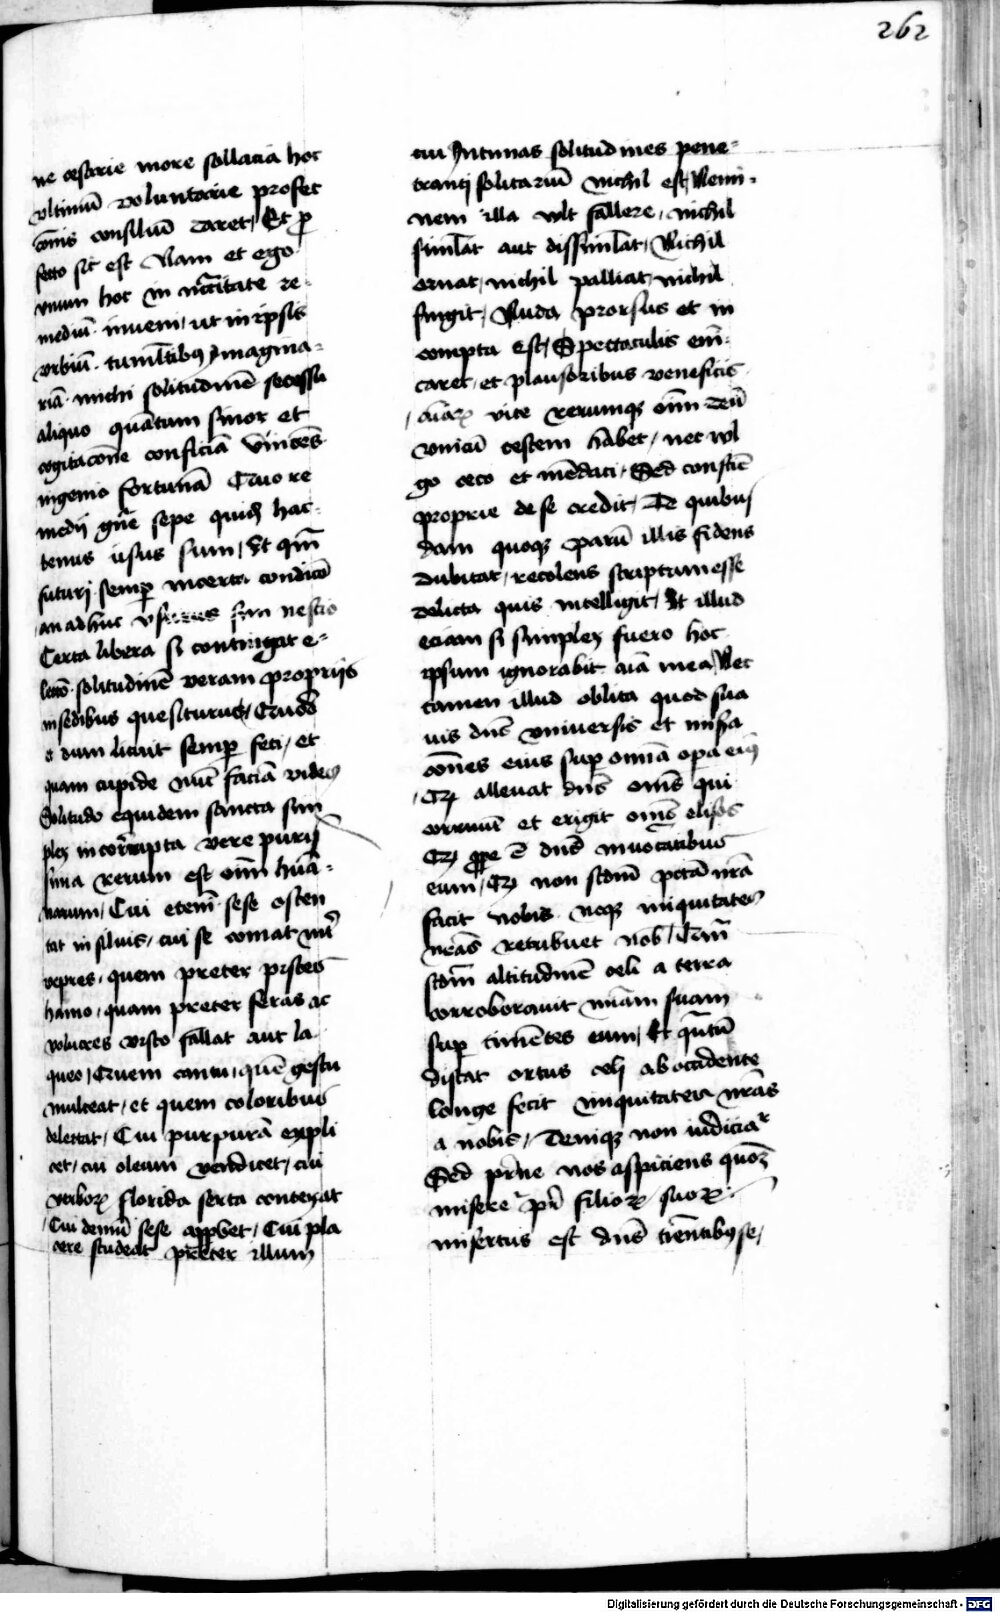 262
ne cesarie more sollacia hoc
vltimū voluntarie profec
cōnis consiliū daret / Et ꝑ
fecto sic est Nam et ego
vnum hoc in nc̄citate re-
mediū inueni / ut in ipsis
vrbiū tumltibꝯ ymagina-
riā michi solitudinē secessu
aliquo quātum sinor et
cogitacōne conficiā vincēs
ingenio fortunā Quo re
medij gn̄e sepe quidē hac-
tenus usus sum / Et qm̄
futuri semꝑ incerta condicō
an adhuc sim nescio
Certa libera si contingat e-
lectō solitudinē veram propriis
in sedibus quesiturus / Quod
dum licuit semꝑ feci / et
quam cupide nūc faciā vides
Solitudo equidem sancta sim
plex incorrupta vere puris
sima rerum est oīm hūa-
narum / Cui etem̄ sese osten
tat in siluis / cui se comat int̄
vepres / quem preter pisces
hamo / quam preter feras ac
volucres visco fallat aut la
queo / Quem cantu / quē gestu
mulceat / et quem coloribus
delectat / Cui purpurā expli
cet / cui oleum vendicet / cui
verboꝝ florida serta contexat
Cui demū sese / Cui pla
cere studeat preter illum
cui Intimas solitudines pene-
tranti solitariū nichil est / Nemi-
nem illa vlt fallere / nichil
simlat aut dissimlat / Nichil
ornat / nichil palliat / nichil
fingit / Nuda prorsus et in
compta est / Spectaculis em̄
caret / et plausoribus veneficis
aīaꝝ vite rerumqꝫ oīm deū
vnicū testem habet / nec wl
go ceco et mēdaci / Sed consciē
proprie de se credit / De quibus
dam quoqꝫ parū illis fidens
dubitat / recolens scriptum esse
Delicta quis intelligit / Et illud
eciam si simplex fuero hoc
ipsum ignorabit aīa mea / Nec
tamen illud oblita quod sua
uis dn̄s vniuersis et misera
cōnes eius suꝑ omnia opa eiꝯ
/ Qꝫ alleuat dn̄s om̄s qui
corruūt et erigit om̄s elisos
Qꝫ ꝓpe ē dn̄s inuocātibus
eum / Qꝫ non scdm̄ pctā nrā
facit nobis neqꝫ iniquitates
nrās retribuet nob / Qm̄
scdm̄ altitudinē celi a terra
corroborauit mīam suam
suꝑ timētes eum / Et qntū
distat ortus celi ab occidente
longe fecit iniquitates nrās
a nobis / Deniqꝫ non
Sed nos aspiciens
misereꞇ̄ pr̄ filioꝝ suoꝝ
misertus est dn̄s timentibꝯ se /
Digitalisierung gefördert durch die Deutsche Forschungsgemeinschaft - DFG